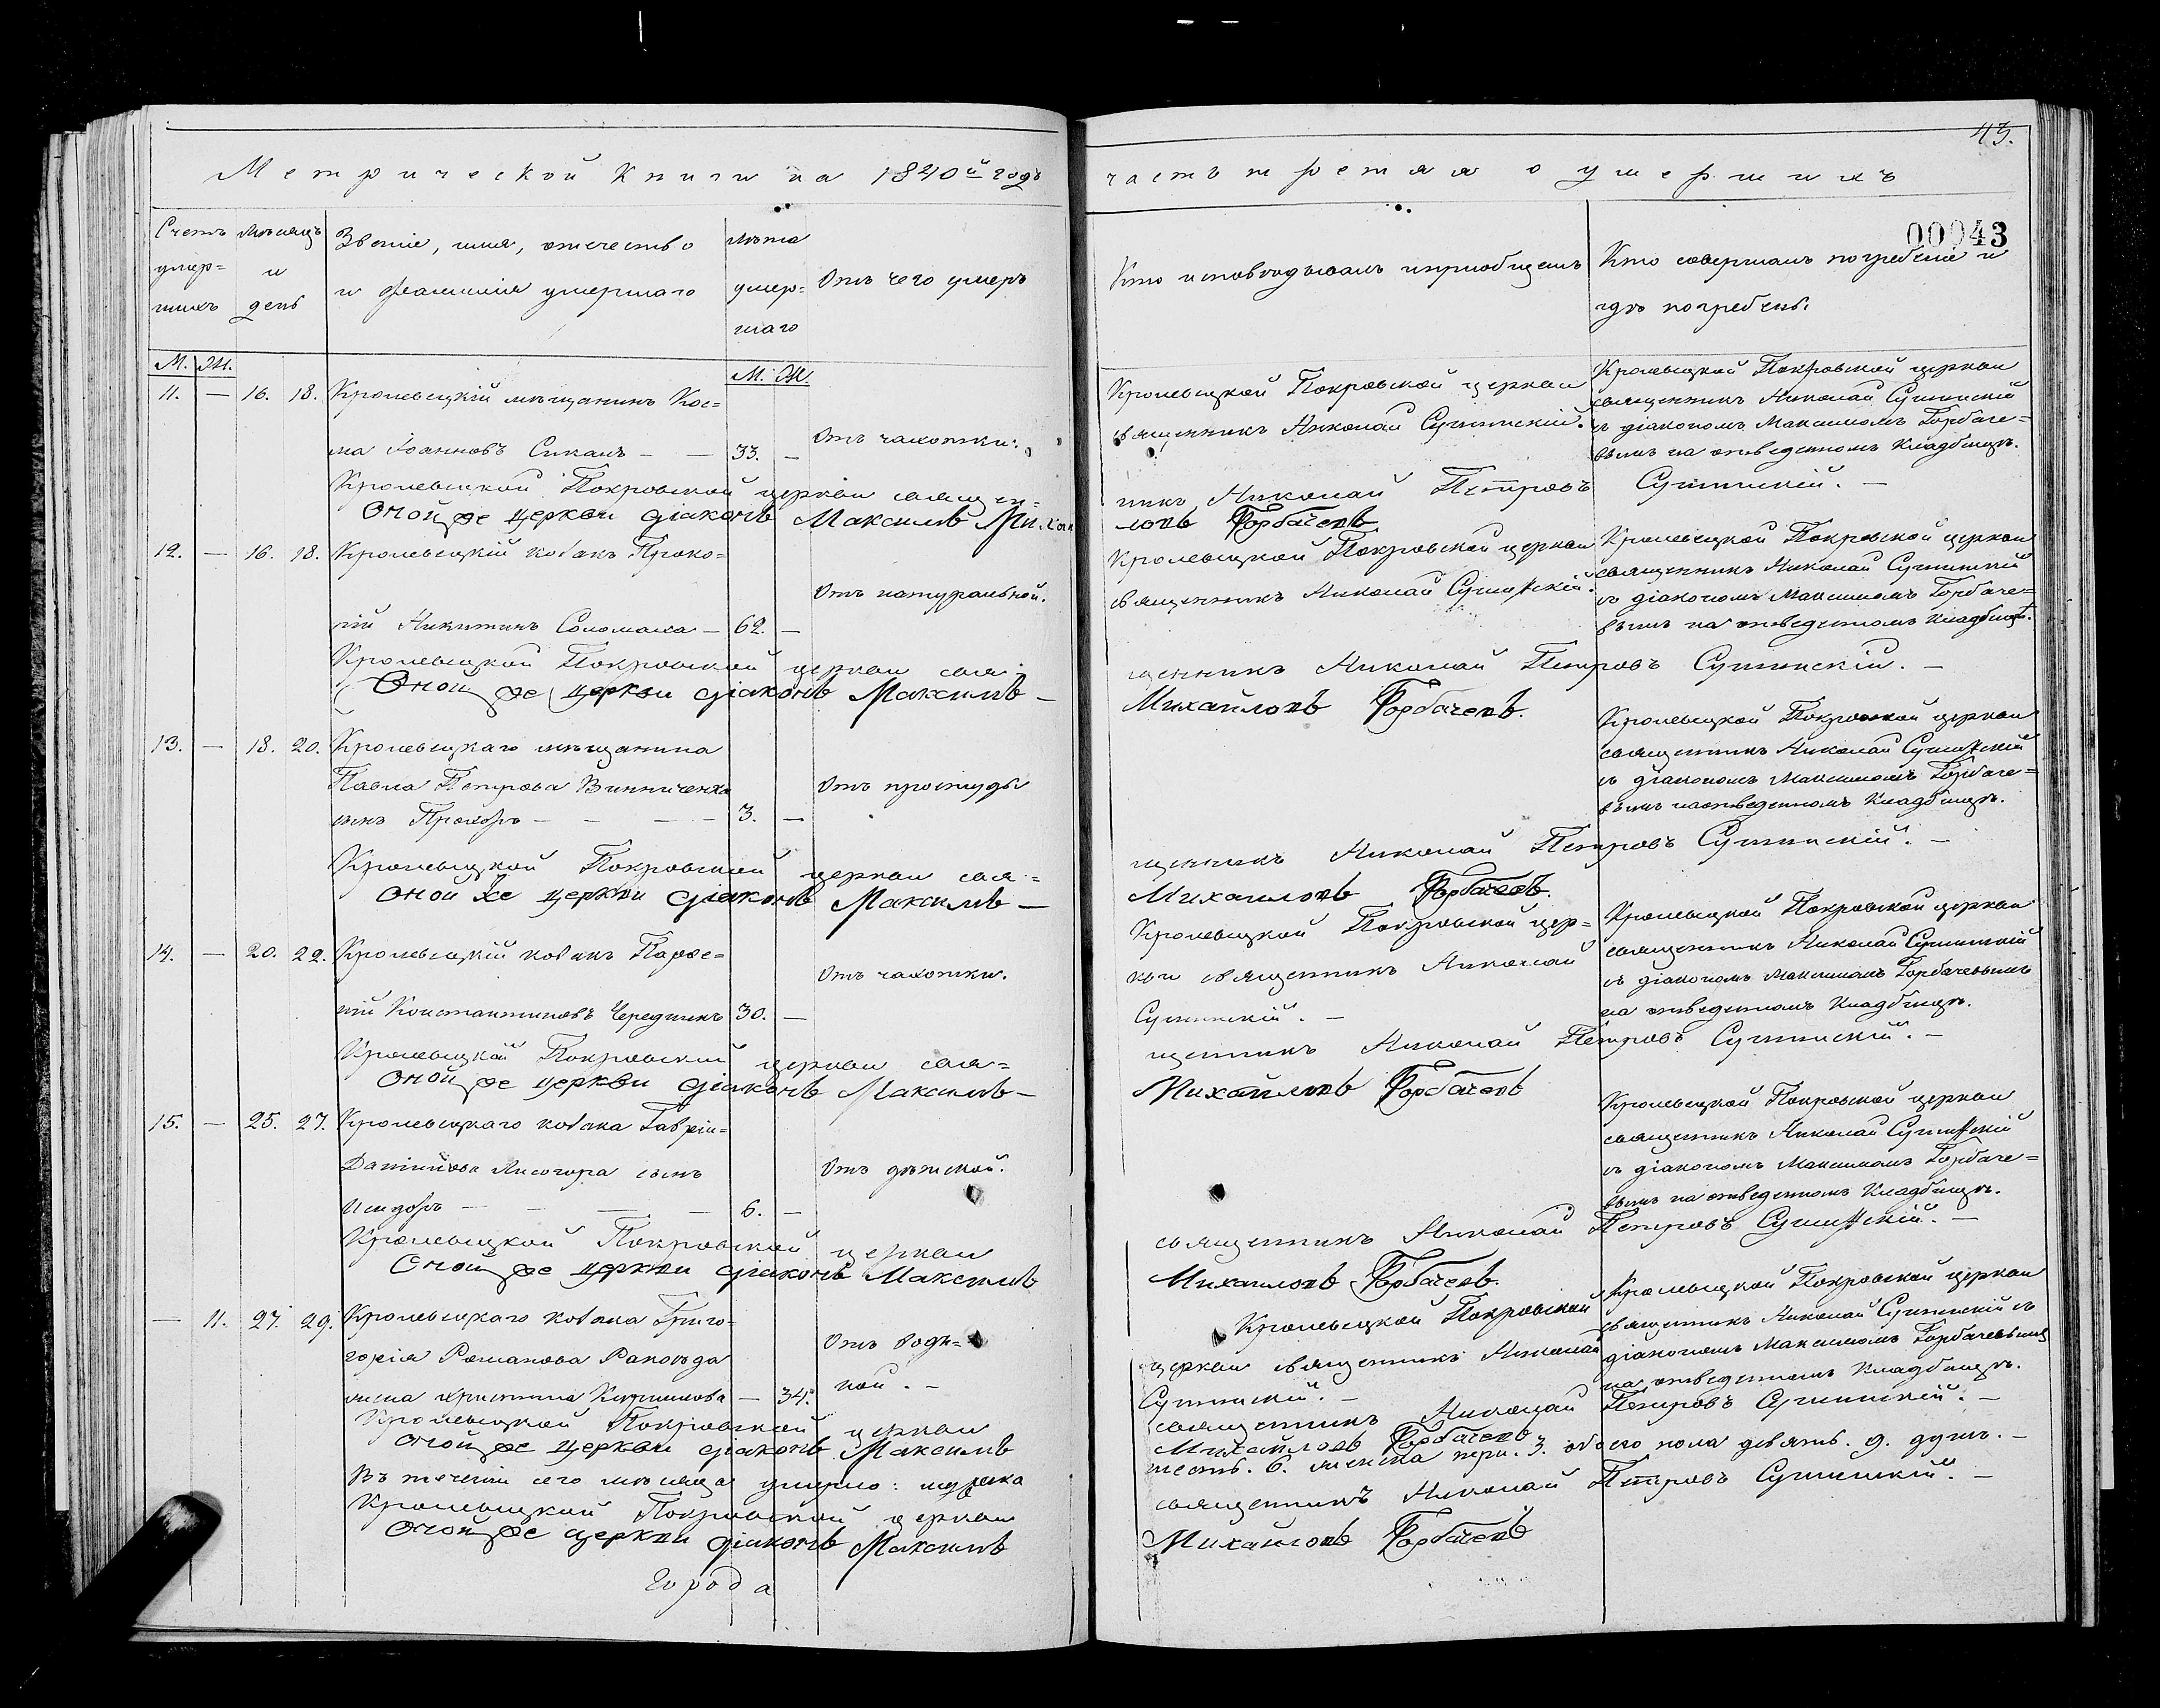 43.
Метрической книги на 1840й годъ
часть третяя о умершихъ
00043
Счетъ умер=шихъ
Мѣсяцъ и день
Званіе, имя, отечество
и фамилія умершаго
Лѣта умер=шаго
Отъ чего умеръ
Кто исповѣдывалъ и пріобщалъ
Кто совершалъ погребеніе и
гдѣ погребены
М. Ж.
М. Ж.
11. — 16. 18. Кролевецкій мѣщанинъ Кос=
ма Іоанновъ Сикалъ — — 33. —
Отъ чахотки.
Кролевецкой Покровской церкви
священникъ Николай Сушинскій.
Кролевецкой Покровской церкви
священникъ Николай Сушинскій
съ діакономъ Максимомъ Горбаче=
вымъ на отведенномъ кладбищѣ.
Кролевецкой Покровской церкви священ=
никъ Николай Петровъ Сушинскій. —
Оной же церкви діаконъ Максимъ Михаи
ловъ Горбачевъ
12. — 16. 18. Кролевецкій козакъ Проко=
пій Никитинъ Соломаха — 62. —
Отъ натуральной.
Кролевецкой Покровской церкви
священникъ Николай Сушинскій.
Кролевецкой Покровской церкви
священникъ Николай Сушинскій
съ діакономъ Максимомъ Горбаче=
вымъ на отведенномъ кладбищѣ.
Кролевецкой Покровской церкви свя=
щенникъ Николай Петровъ Сушинскій. —
Оной же церкви діаконъ Максимъ —
Михайловъ Горбачевъ.
13. — 18. 20. Кролевецкаго мѣщанина
Павла Петрова Винниченка
сынъ Прохоръ — — — — 3. —
Отъ простуды
Кролевецкой Покровской церкви
священникъ Николай Сушинскій
съ діакономъ Максимомъ Горбаче=
вымъ на отведенномъ кладбищѣ.
Кролевецкой Покровской церкви свя=
щенникъ Николай Петровъ Сушинскій. —
Оной же церкви діаконъ Максимъ —
Михаиловъ Горбачевъ.
14. — 20. 22. Кролевецкій козакъ Парѳе=
ній Константиновъ Чередникъ 30. —
Отъ чахотки.
Кролевецкой Покровской цер=
кви священникъ Николай
Сушинскій. —
Кролевецкой Покровской церкви
священникъ Николай Сушинскій
съ діакономъ Максимомъ Горбачевымъ
на отведенномъ кладбищѣ.
Кролевецкой Покровской церкви свя=
щенникъ Николай Петровъ Сушинскій. —
Оной же церкви діаконъ Максимъ —
Михайловъ Горбачевъ
15. — 25. 27. Кролевецкаго козака Гаврiи=
Даниилова Лисогора сынъ
Исидоръ — — — — 6. —
Отъ дѣтской.
Кролевецкой Покровской церкви
священникъ Николай Сушинскій
съ діакономъ Максимомъ Горбаче=
вымъ на отведенномъ кладбищѣ.
Кролевецкой Покровской церкви
священникъ Николай Петровъ Сушинскій. —
Оной же церкви діаконъ Максимъ
Михаиловъ Горбачевъ.
— 11. 27. 29. Кролевецкаго козака Григо=
горія Романова
жена Христина — 34.
Отъ водя=
ной. —
Кролевецкой Покровской
церкви священникъ Николай
Сушинскій. —
Кролевецкой Покровской церкви
священникъ Николай Сушинскій съ
діакономъ Максимомъ Горбачевымъ
на отведенномъ кладбищѣ.
Кролевецкой Покровской церкви
священникъ Николай Петровъ Сушинскій. —
Оной же церкви діаконъ Максимъ
Михайловъ Горбачевъ
Въ теченіи сего мѣсяца умерло: мужска
шесть. 6. женска три. 3. обоего пола девять. 9. душъ. —
Кролевецкой Покровской церкви
священникъ Николай Петровъ Сушинскій. —
Оной же церкви діаконъ Максимъ
Михайловъ Горбачевъ
Города